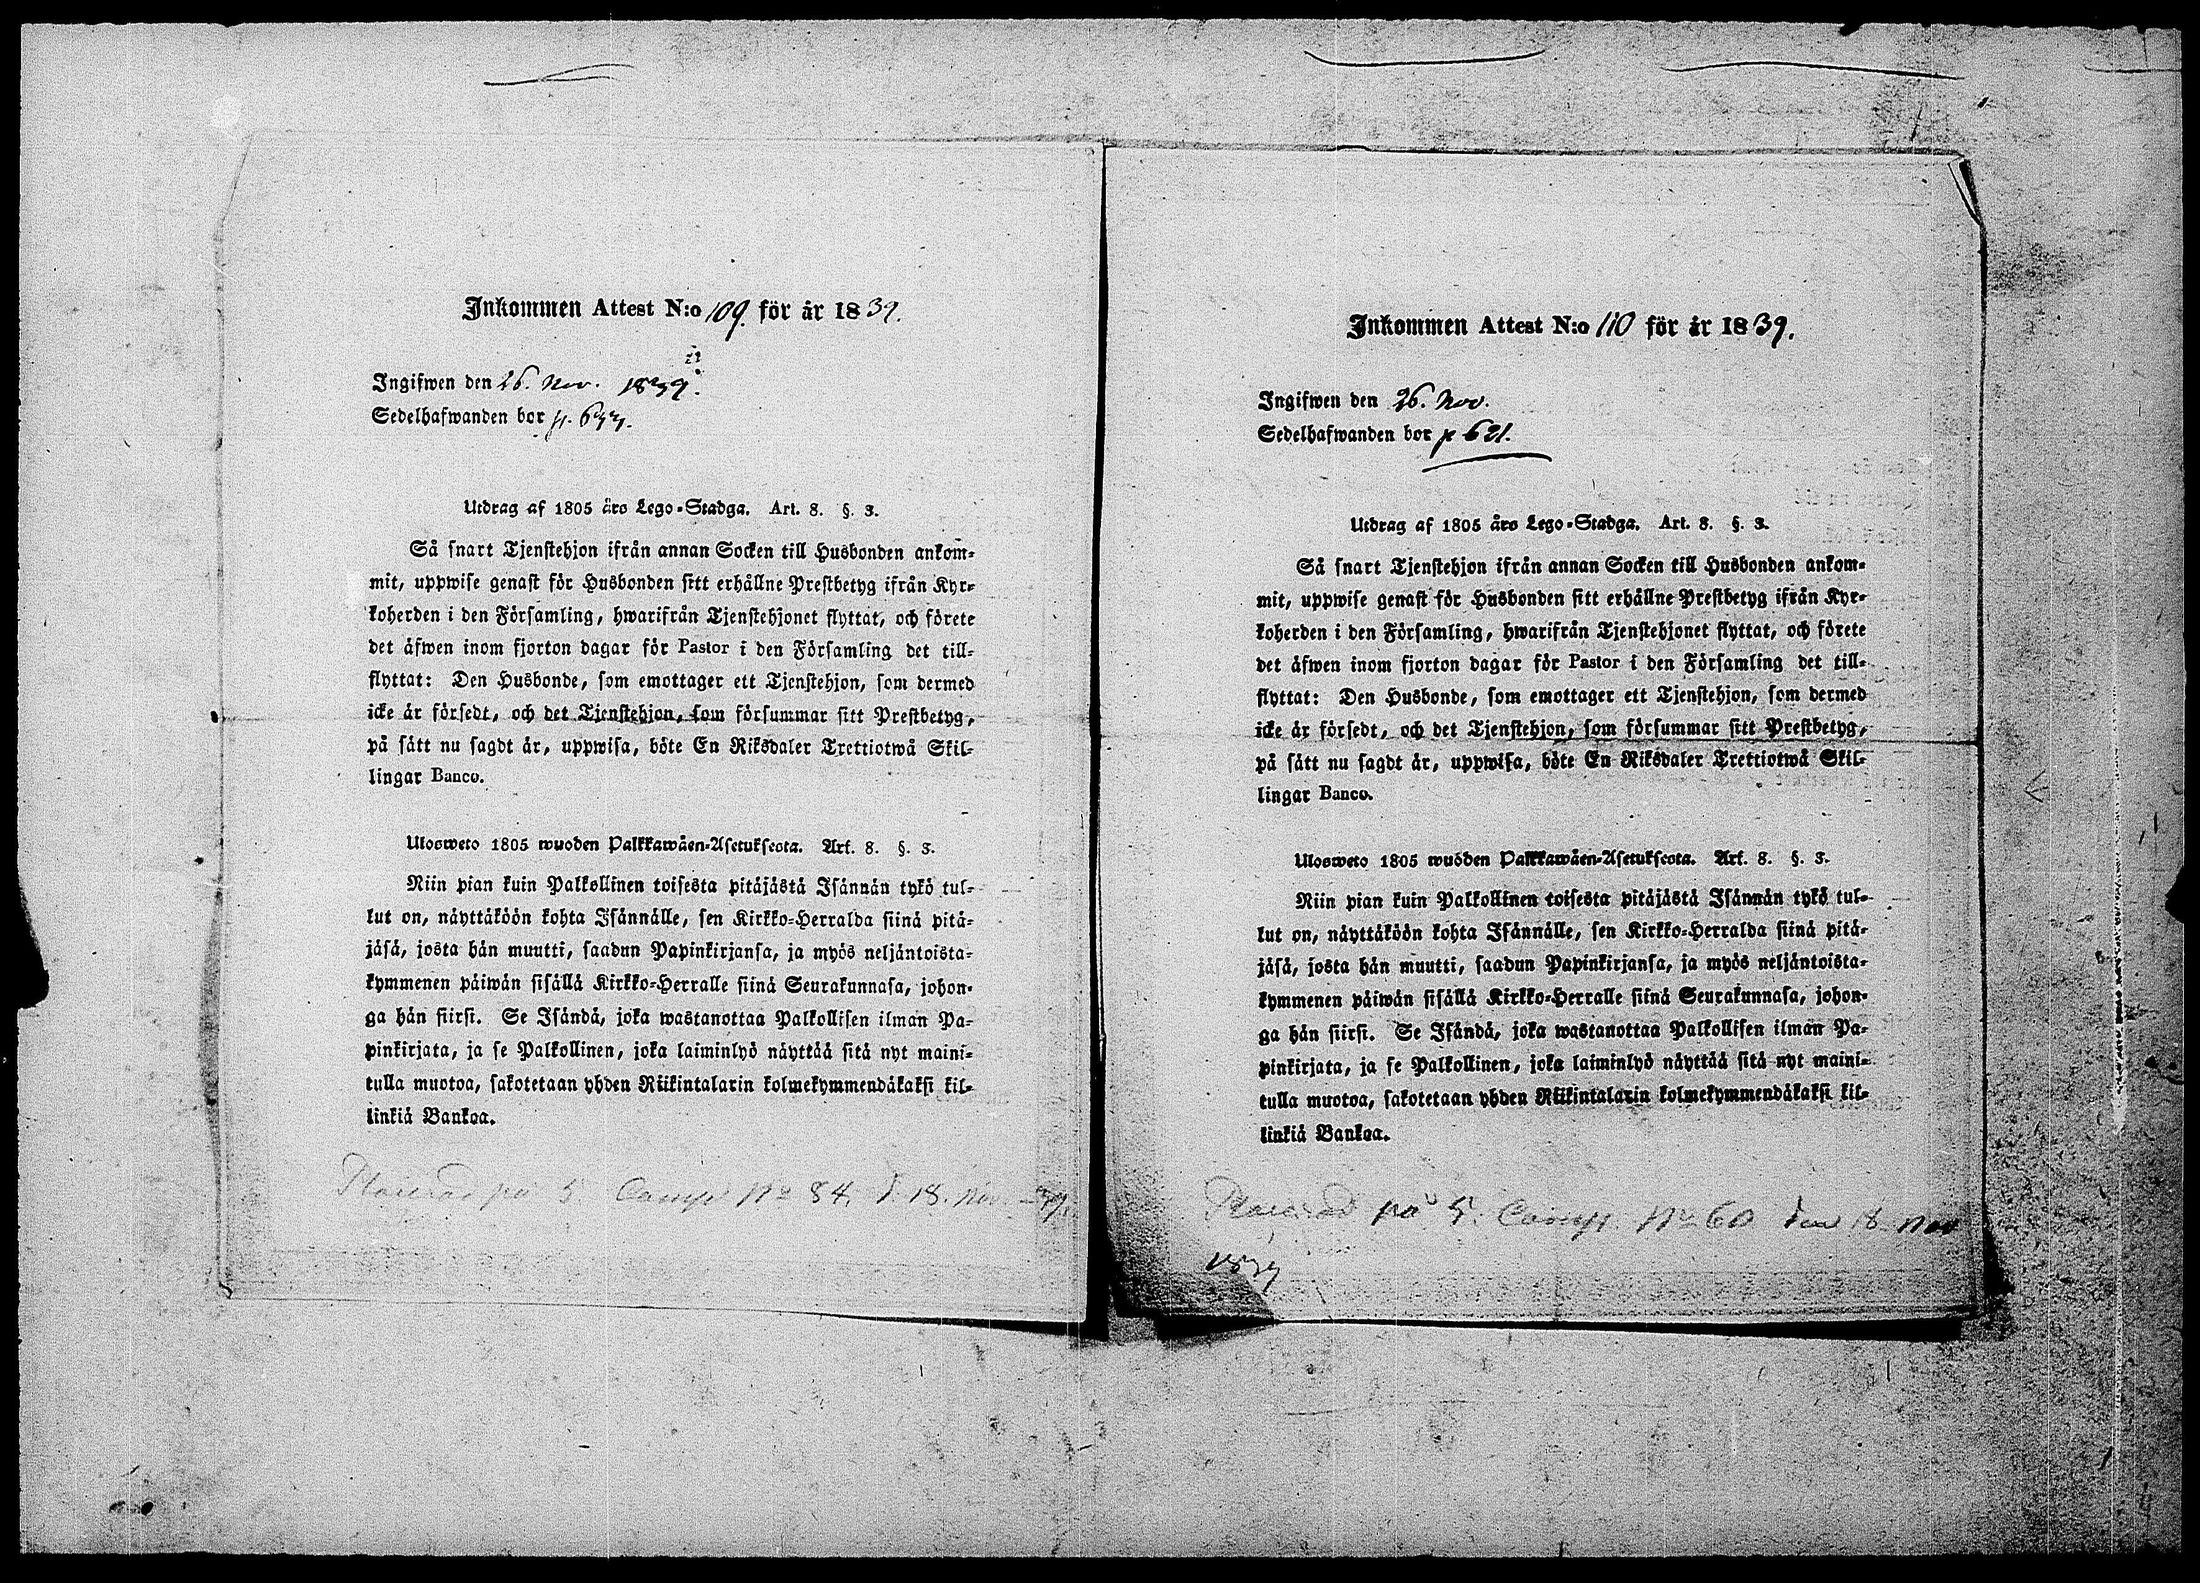 Inkommen Attest N:o 109. för år 1839.
Ingifwen den 26. Nov. 1839.
Sedelhafwanden bor p. 633.
Utdrag af 1805 års Lego-Stadga. Art. 8. §. 3.
Så snart Tjenstehjon ifrån annan Socken till Husbonden ankom-
mit, uppwise genast för Husbonden sitt erhållne Prestbetyg ifrån Kyr-
koherden i den Församling, hwarifrån Tjenstehjonet flyttat, och förete
det äfwen inom fjorton dagar för Pastor i den Församling det till-
flyttat: Den Husbonde, som emottager ett Tjenstehjon, som dermed
icke är försedt, och det Tjenstehjon, som försummar sitt Prestbetyg,
på sätt nu sagdt är, uppwisa, böte En Riksdaler Trettiotwå Skil-
lingar Banco.
Ulosweto 1805 wuoden Palkkawäen-Asetuksesta. Art. 8. §. 3.
Niin pian kuin Palkollinen toisesta pitäjästä Isännän tykö tul-
lut on, näyttäköön kohta Isännälle, sen Kirkko-Herralda siinä pitä-
jäsä, josta hän muutti, saadun Papinkirjansa, ja myös neljäntoista-
kymmenen päiwän sisällä Kirkko-Herralle siinä Seurakunnasa, johon-
ga hän siirsi. Se Isändä, joka wastanottaa Palkollisen ilman Pa-
pinkirjata, ja se Palkollinen, joka laiminlyö näyttää sitä nyt maini-
tulla muotoa, sakotetaan yhden Riikintalarin kolmekymmendäkaksi kil-
linkiä Bankoa.
Placerad på 5 Comp No 84. d. 18. Nov. 39.
Inkommen Attest N:o 110 för år 1839.
Ingifwen den 26. Nov.
Sedelhafwanden bor p 621.
Utdrag af 1805 års Lego-Stadga. Art. 8. §. 3.
Så snart Tjenstehjon ifrån annan Socken till Husbonden ankom-
mit, uppwise genast för Husbonden sitt erhållne Prestbetyg ifrån Kyr-
koherden i den Församling, hwarifrån Tjenstehjonet flyttat, och förete
det äfwen inom fjorton dagar för Pastor i den Församling det till-
flyttat: Den Husbonde, som emottager ett Tjenstehjon, som dermed
icke är försedt, och det Tjenstehjon, som försummar sitt Prestbetyg,
på sätt nu sagdt är, uppwisa, böte En Riksdaler Trettiotwå Skil-
lingar Banco.
Ulosweto 1805 wuoden Palkkawäen-Asetuksesta. Art. 8. §. 3.
Niin pian kuin Palkollinen toisesta pitäjästä Isännän tykö tul-
lut on, näyttäköön kohta Isännälle, sen Kirkko-Herralda siinä pitä-
jäsä, josta hän muutti, saadun Papinkirjansa, ja myös neljäntoista-
kymmenen päiwän sisällä Kirkko-Herralle siinä Seurakunnasa, johon-
ga hän siirsi. Se Isändä, joka wastanottaa Palkollisen ilman Pa-
pinkirjata, ja se Palkollinen, joka laiminlyö näyttää sitä nyt maini-
tulla muotoa, sakotetaan yhden Riikintalarin kolmekymmendäkaksi kil-
linkiä Bankoa.
Placerad på 5. Comp. No 60 den 18 Nov
1839